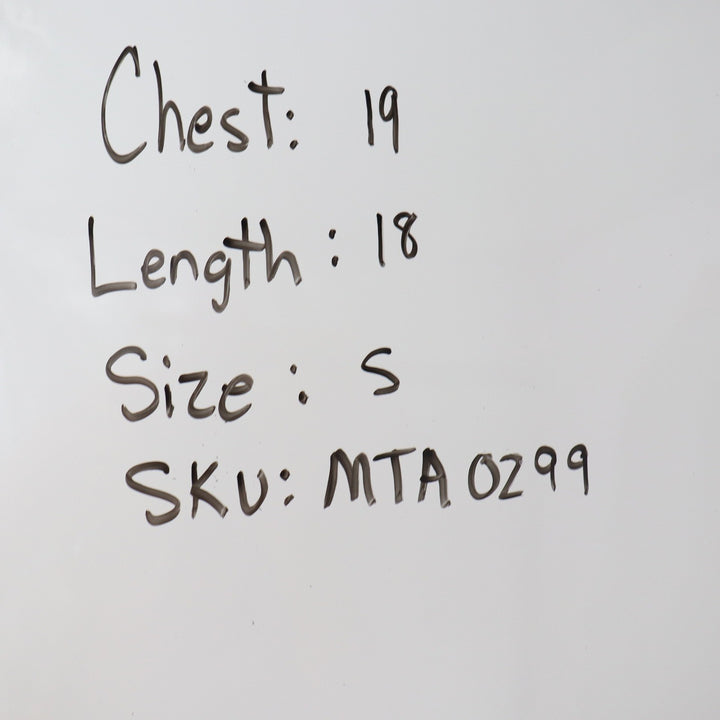 Chest: 19
Length: 18
Size: S
SKU: MTA0299